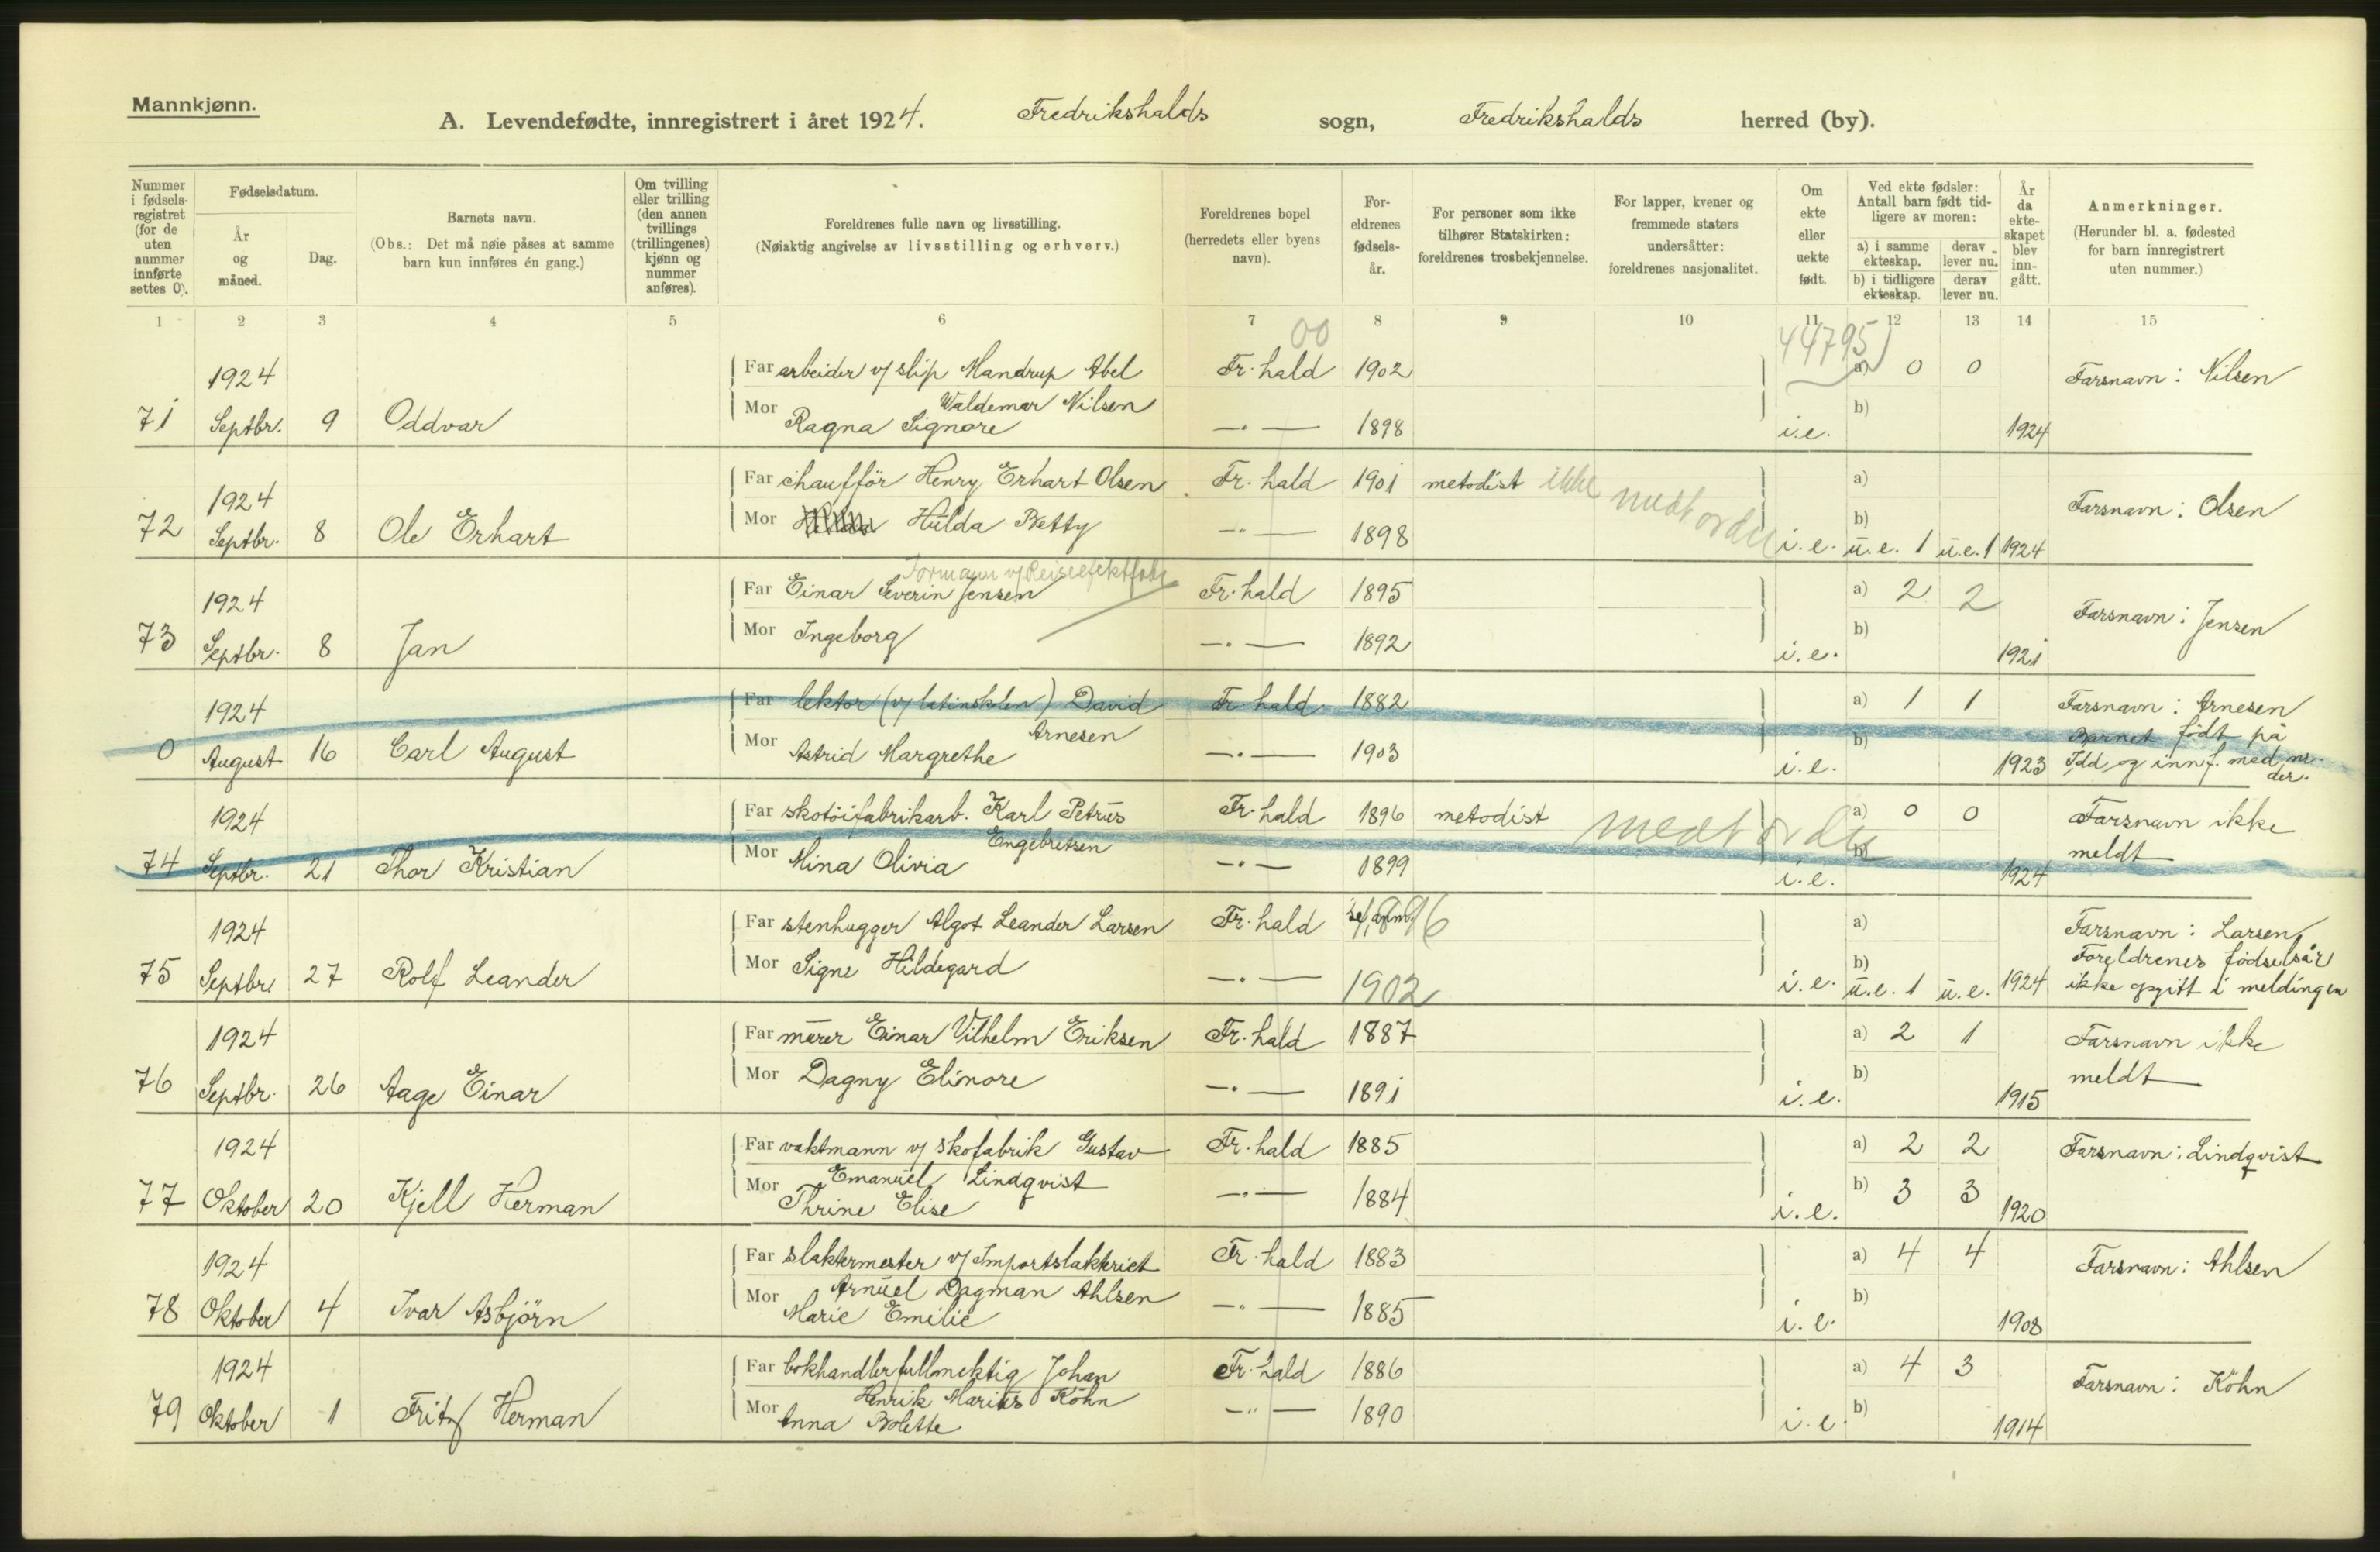 Mannkjønn.
A. Levendefødte, innregistrert i året 1924. Fredrikshalds sogn, Fredrikshalds herred (by).
Nummer i fødsels-registret (for de uten nummer innførte settes 0).
Fødselsdatum.
År og måned.
Dag.
Barnets navn.
(Obs.: Det må nøie påses at samme barn kun innføres én gang.)
Om tvilling eller trilling (den annen tvillings (trillingenes) kjønn og nummer anføres).
Foreldrenes fulle navn og livsstilling.
(Nøiaktig angivelse av livsstilling og erhverv.)
Foreldrenes bopel (herredets eller byens navn).
For-eldrenes fødsels-år.
For personer som ikke tilhører Statskirken: foreldrenes trosbekjennelse.
For lapper, kvener og fremmede staters undersåtter: foreldrenes nasjonalitet.
Om ekte eller uekte født.
Ved ekte fødsler: Antall barn født tid-ligere av moren:
a) i samme ekteskap. derav lever nu.
b) i tidligere ekteskap. derav lever nu.
År da ekte-skapet blev inn-gått.
Anmerkninger.
(Herunder bl. a. fødested for barn innregistrert uten nummer.)
1 2 3 4 5 6 7 8 9 10 11 12 13 14 15
00 44795
1924 Far arbeider v/ slip Mandrup Abel Fr.hald 1902 a) 0 0 Farsnavn: Nilsen
Waldemar Nilsen
71 Septbr. 9 Oddvar Mor Ragna Signore —"— 1898 i.e. b) 1924
1924 Far chaufför Henry Erhart Olsen Fr.hald 1901 metodist ikke a) Farsnavn: Olsen
72 Septbr. 8 Ole Erhart Mor Hulda Betty —"— 1898 i.e. b) u.e. 1 u.e. 1 1924
Formann v/
1924 Far Einar Severin Jensen Fr.hald 1895 a) 2 2 Farsnavn: Jensen
73 Septbr. 8 Jan Mor Ingeborg —"— 1892 i.e. b) 1921
1924 Far lektor (v/ latinskolen) David Fr.hald 1882 a) 1 1 Farsnavn: Arnesen
Arnesen Barnet født på
0 August 16 Carl August Mor Astrid Margrethe —"— 1903 i.e. b) 1923 Idd og innf. med nr.
der.
1924 Far skotöifabrikarb. Karl Petrus Fr.hald 1896 metodist a) 0 0 Farsnavn ikke
Engebretsen meldt
74 Septbr. 21 Thor Kristian Mor Mina Olivia —"— 1899 i.e. b) 1924
1924 Far stenhugger Algot Leander Larsen Fr.hald a) Farsnavn: Larsen
Foreldrenes fødselsår
75 Septbr. 27 Rolf Leander Mor Signe Hildegard —"— 1902 i.e. b) u.e. 1 u.e. 1924 ikke opgitt i meldingen
1924 Far murer Einar Vilhelm Eriksen Fr.hald 1887 a) 2 1 Farsnavn ikke
76 Septbr. 26 Aage Einar Mor Dagny Elinore —"— 1891 i.e. b) 1915 meldt
1924 Far vaktmann v/ skofabrik Gustav Fr.hald 1885 a) 2 2 Farsnavn: Lindqvist
Emanuel Lindqvist
77 Oktober 20 Kjell Herman Mor Thrine Elise —"— 1884 i.e. b) 3 3 1920
1924 Far slaktermester v/ Importslakteriet Fr.hald 1883 a) 4 4 Farsnavn: Ahlsen
Arnuel Dagman Ahlsen
78 Oktober 4 Ivar Asbjörn Mor Marie Emilie —"— 1885 i.e. b) 1908
1924 Far bokhandlerfullmektig Johan Fr.hald 1886 a) 4 3 Farsnavn: Köhn
Henrik Marius Köhn
79 Oktober 1 Fritz Herman Mor Anna Bolette —"— 1890 i.e. b) 1914